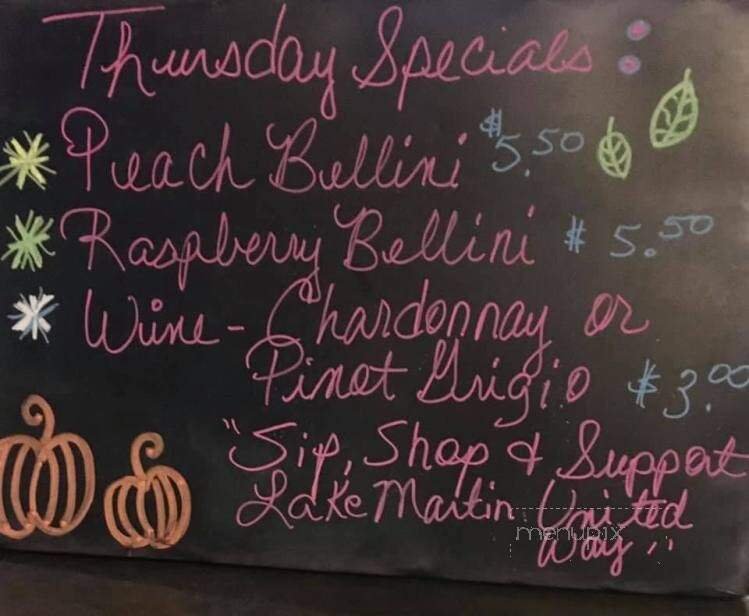 Thursday Specials:
Peach Bellini $5.50
Raspberry Bellini $5.50
Wine - Chardonnay or
Pinot Grigio $3.00
"Sip, Shop & Support
Lake Martin United
Way"
menupix